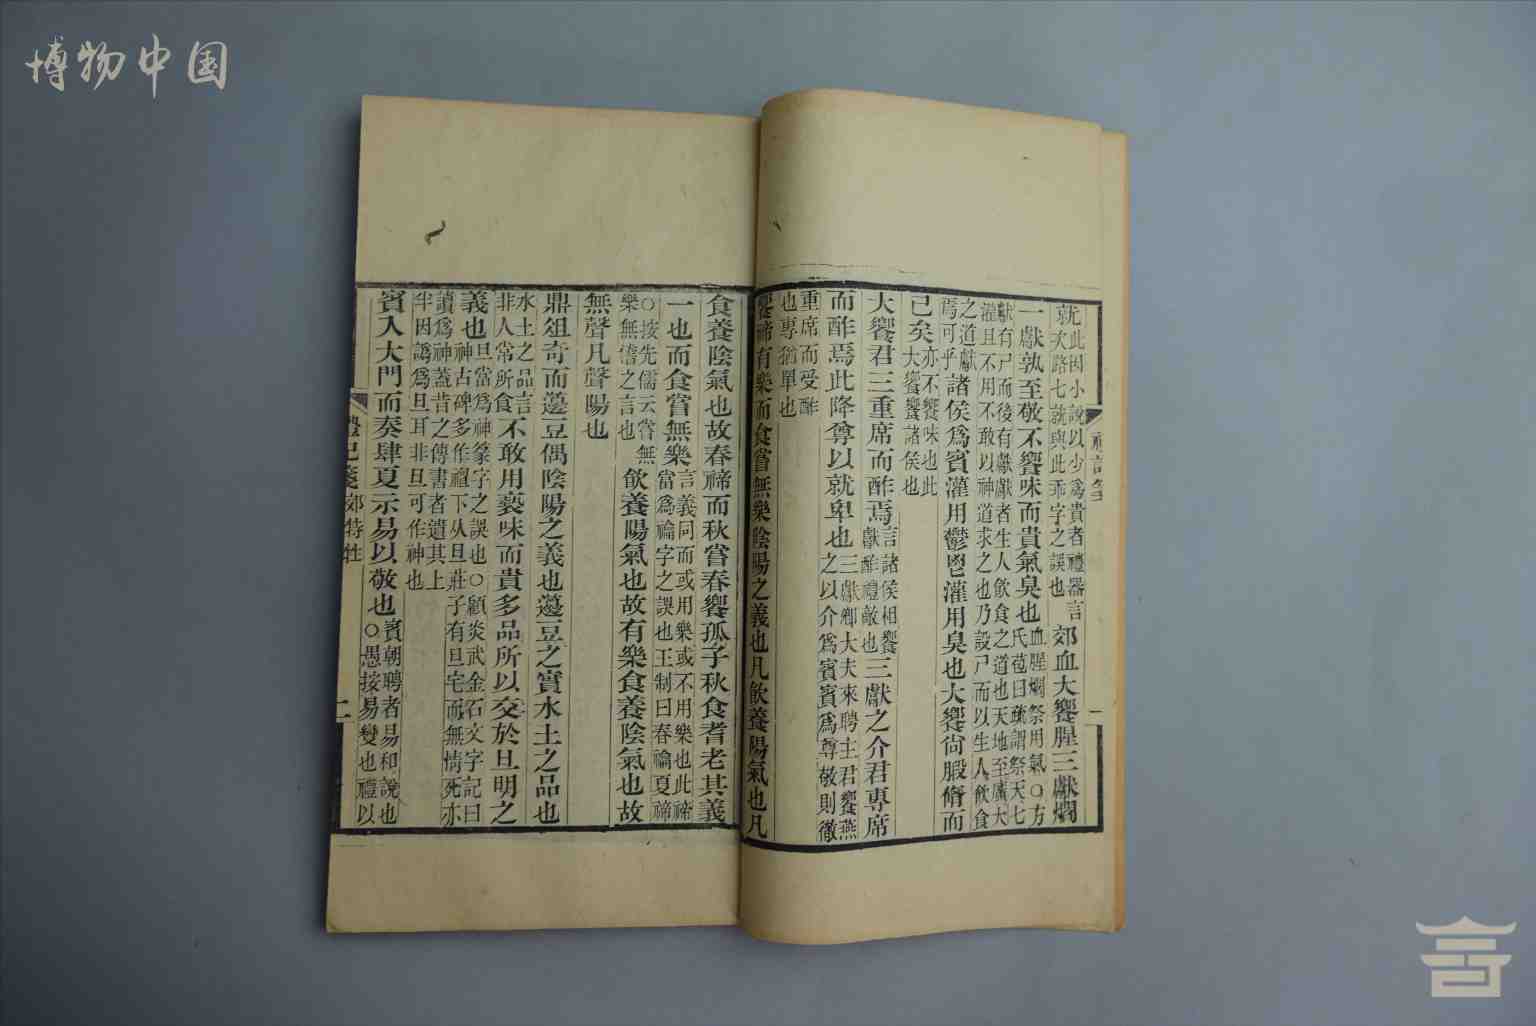 博物中国
就此因小說以少爲貴者禮器言
次路七就與此乖字之誤也
郊血大饗腥三獻爓
一獻孰至敬不饗味而貴氣臭也
血腥爓祭用氣○方
氏苞曰疏謂祭天七
獻有尸而後有獻獻者生人飮食之道也天地至廣大
灌且不用不敢以神道求之也乃設尸而以生人飮食
之道獻
焉可乎
諸侯爲賓灌用鬱鬯灌用臭也大饗尙腶脩而
已矣
亦不饗味也此
大饗饗諸侯也
大饗君三重席而酢焉
言諸侯相饗
獻酢禮敵也
三獻之介君專席
而酢焉此降尊以就卑也
三獻鄉大夫來聘主君饗燕
之以介爲賓賓爲尊敬則徹
重席而受酢
也專猶單也
饗禘有樂而食嘗無樂陰陽之義也凡飮養陽氣也凡
食養陰氣也故春禘而秋嘗春饗孤子秋食耆老其義
一也而食嘗無樂
言義同而或用樂或不用樂也此禘
當爲禴字之誤也王制曰春禴夏禘
○按先儒云嘗無
樂無僃之言也
飮養陽氣也故有樂食養陰氣也故
無聲凡聲陽也
鼎俎奇而籩豆偶陰陽之義也籩豆之實水土之品也
水土之品言
非人常所食
不敢用褻味而貴多品所以交於旦明之
義也
旦當爲神篆字之誤也○顧炎武金石文字記曰
神古碑多作䄠下从旦莊子有旦宅而無情死亦
讀爲神蓋昔之傳書者遺其上
半因譌爲旦耳非旦可作神也
賓入大門而奏肆夏示易以敬也
賓朝聘者易和說也
○愚按易變也禮以
禮記箋
郊特牲
二
一